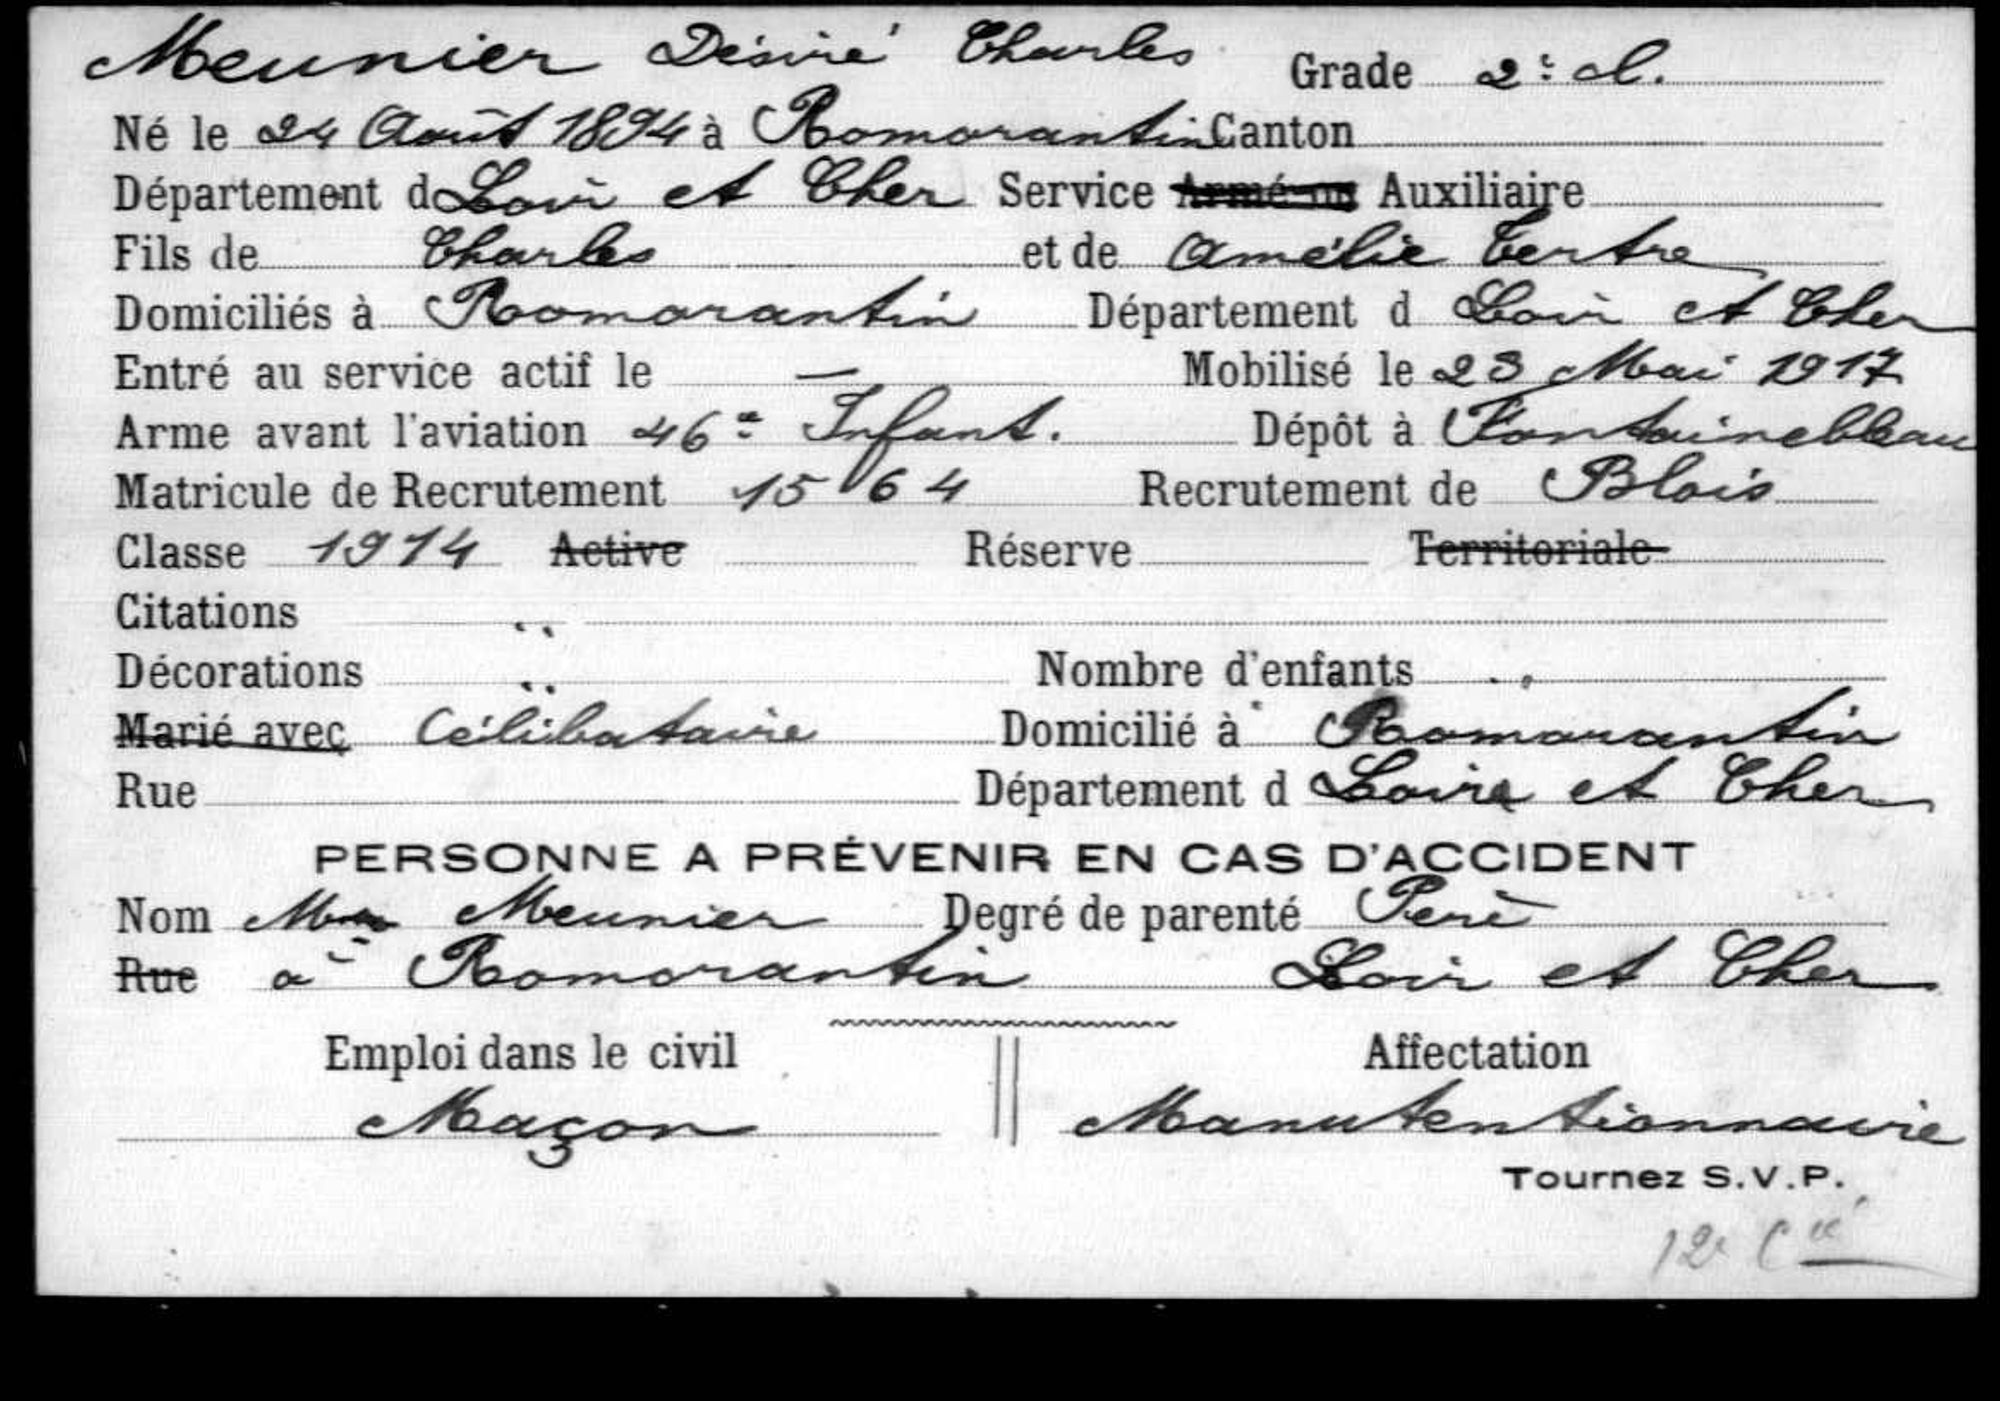 Meunier Désiré Charles Grade 2e cl.
Né le 24 Août 1894 à Romorantin Canton
Département d Loir et Cher Service Armé ou Auxiliaire
Fils de Charles et de Amélie Tertre
Domiciliés à Romorantin Département d Loir et Cher
Entré au service actif le — Mobilisé le 23 Mai 1917
Arme avant l'aviation 46e Infant. Dépôt à Fontainebleau
Matricule de Recrutement 1564 Recrutement de Blois
Classe 1914 Active Réserve Territoriale
Citations
Décorations Nombre d'enfants
Marié avec Célibataire Domicilié à Romorantin
Rue Département d Loire et Cher
PERSONNE A PRÉVENIR EN CAS D'ACCIDENT
Nom Meunier Degré de parenté Père
Rue à Romorantin Loir et Cher
Emploi dans le civil Affectation
Maçon Manutentionnaire
Tournez S.V.P.
12e Cie